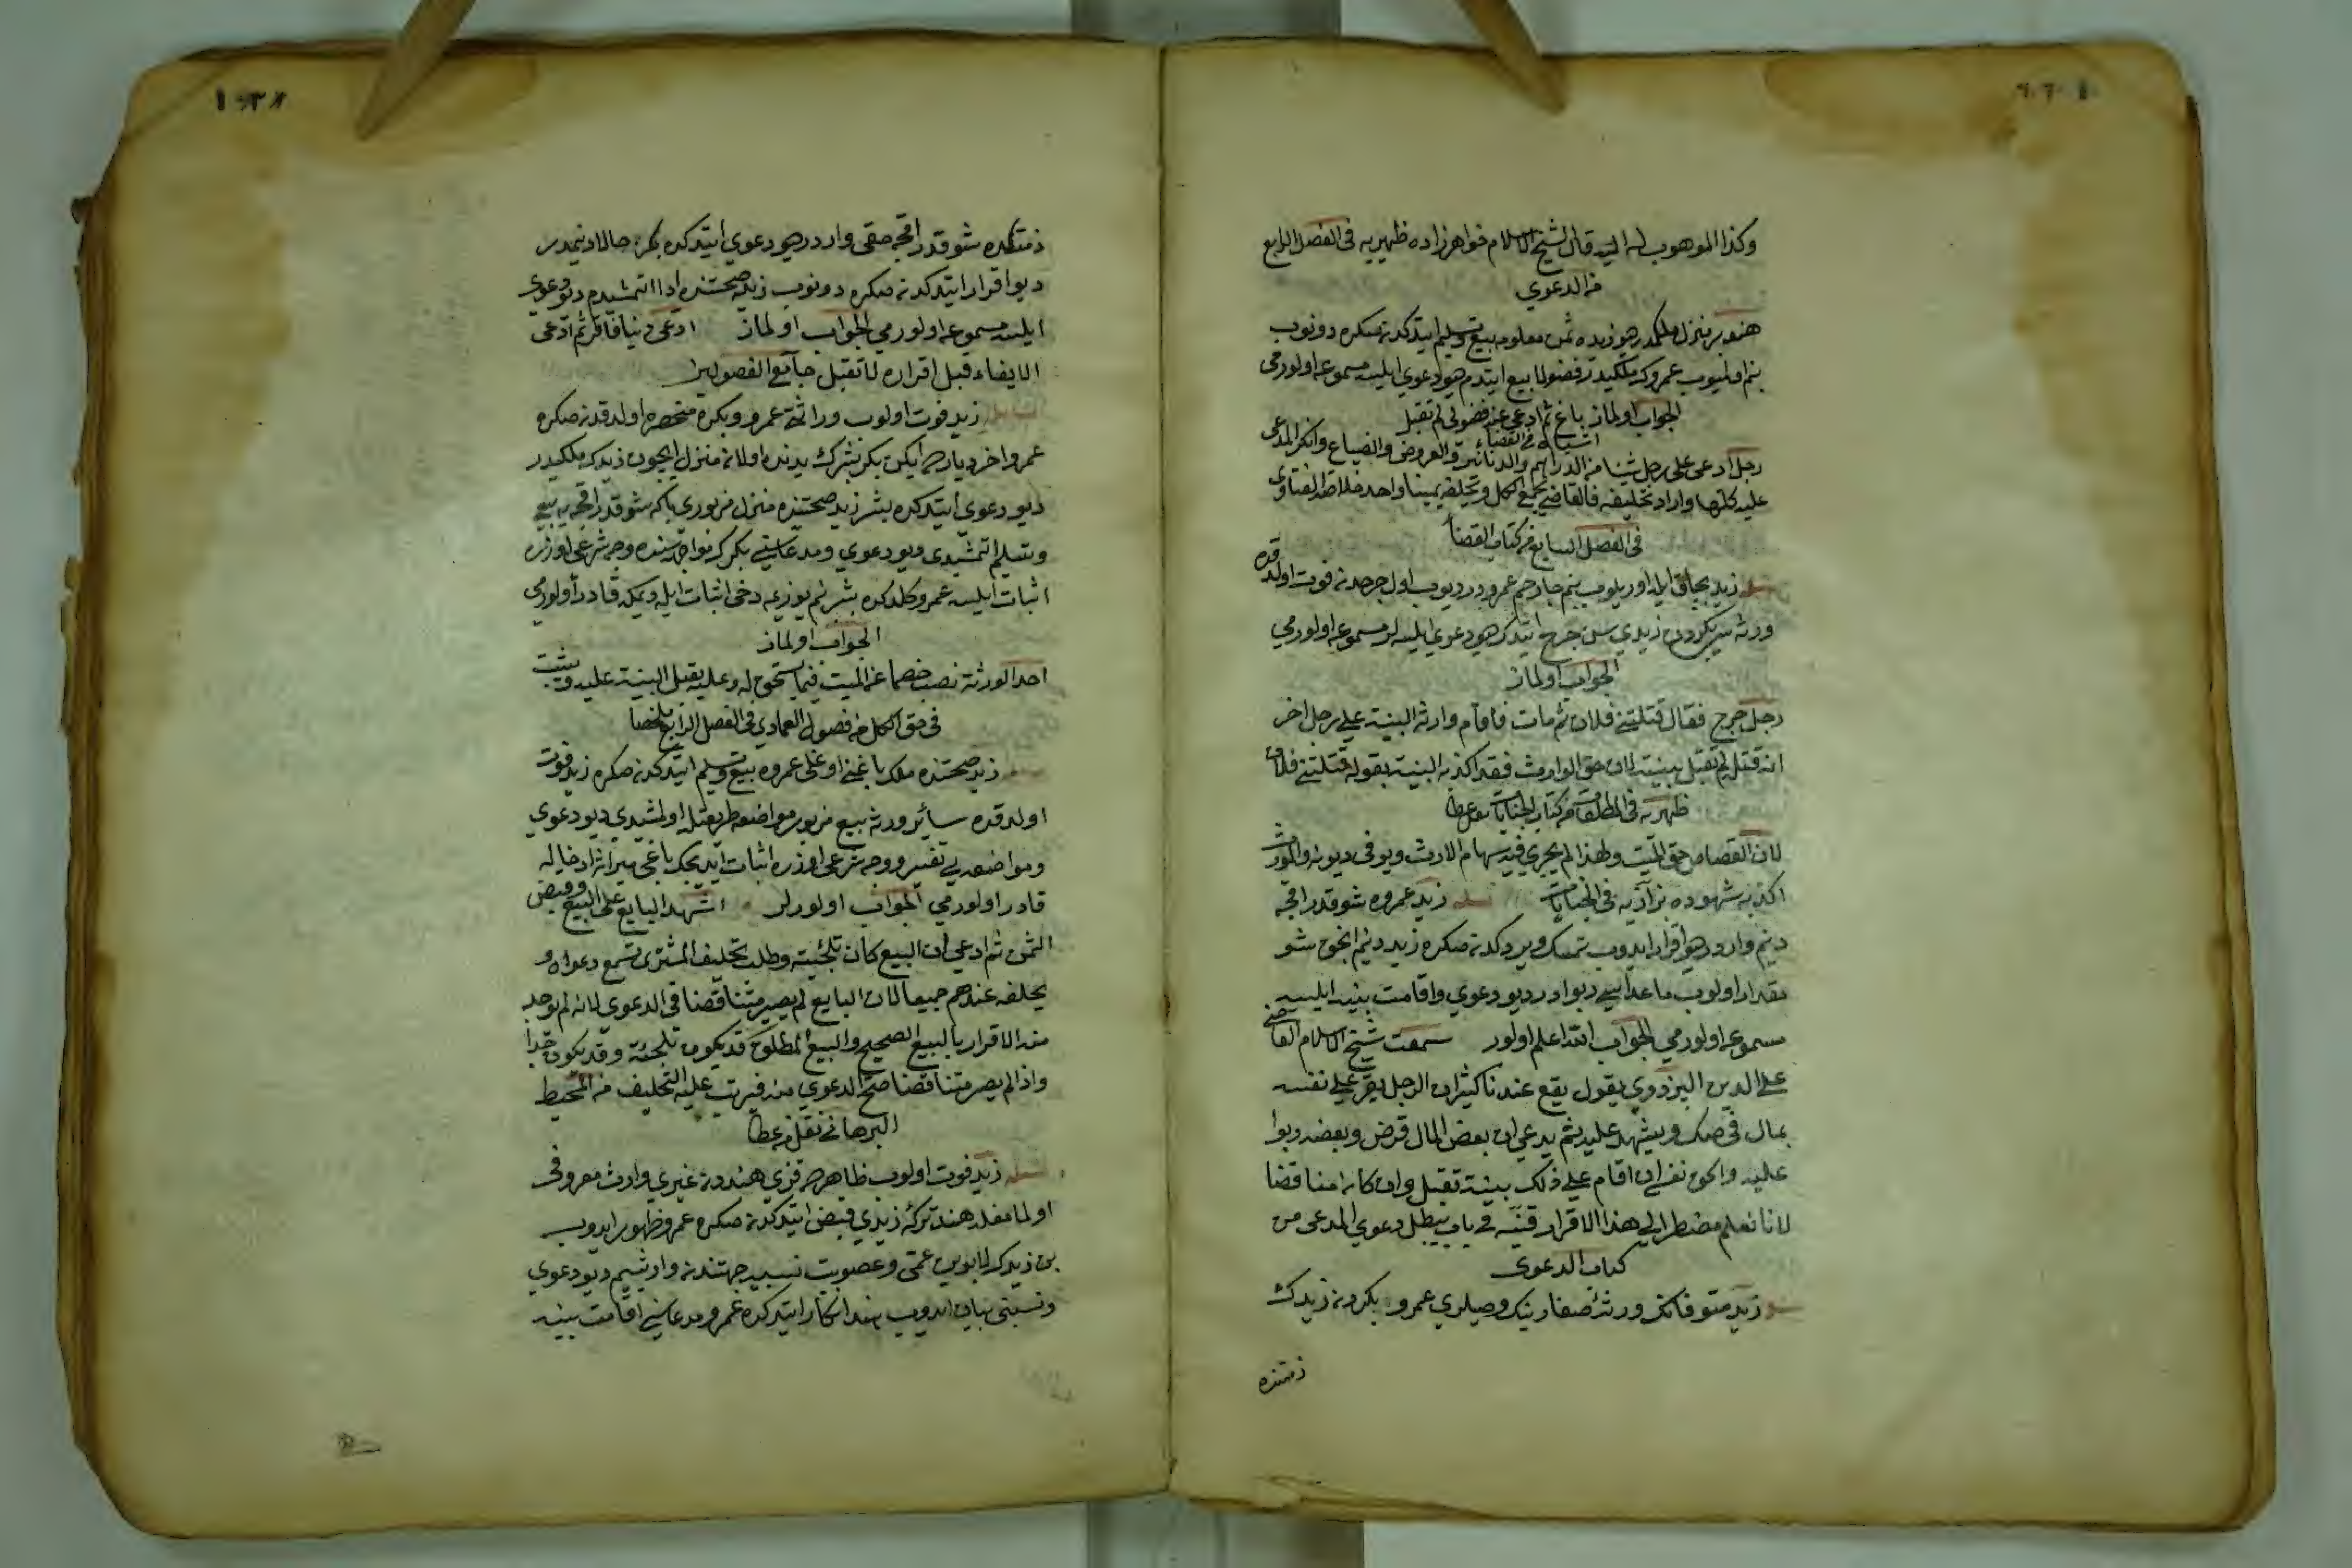 وكذا الموهوب له اليه قال شيخ الاسلام خواهرزاده ظهيريه فى الفصل الرابع
من الدعوي
هند بر منزل ملكمدر ديو زيده ثمن معلومه بيع وتسليم ايتدكدنصكره دونوب
بنم اولميوب عمروك ملكيدر فضولا بيع ايتدم ديو دعوي ايلسه مسموعه اولورمي
الجواب اولماز باع ثم ادعى انه فضولي لم تقبل
اشباه من القضاء
رجل ادعى على رجل شيئا من الدراهم والدنانير والعروض والضياع وانكر المدعى
عليه كلها واراد تحليفه فالقاضي يجمع الكل ويحلفه يمينا واحد خلاصة الفتاوى
فى الفصل السابع من كتاب القضا
زيد بچاق ايله اوريلوب بنم جارحم عمرودر ديوب اول جرحدن فوت اولدقده
ورثه سى بكر زيدي سن جرح ايتدك ديو دعوي ايلسه لر مسموعه اولورمي
الجواب اولماز
رجل جرح فقال قتلني فلان ثم مات فاقام وارثه البينة على رجل اخر
انه قتله لم تقبل بينته لان حق الوارث فقد اكذب البينة بقوله قتلني فلان
ظهيريه فى المطلقات من كتاب الجنايات
لان القصاص حق الميت ولهذا لم يجري فيه سهام الارث ويوفى ديونه والمورث
اكذب شهوده بزازيه فى الجنايات مسئله زيد عمروه شو قدر اقچه
دينم واردر ديو اقرار ايدوب تمسك ويردكدنصكره زيد دينم انجق شو
مقدار اولوب ماعداسي ربوادر ديو دعوي واقامت بينه ايلسه
مسموعه اولورمي الجواب الله اعلم اولور سمعت شيخ الاسلام القاضي
علا الدين البزدوي يقول يقع عندنا كثيرا ان الرجل يقر على نفسه
بمال فى صك ويشهد عليه ثم يدعى ان بعض المال قرض وبعضه ربوا
عليه ونحن نفتى ان اقام على ذلك بينة تقبل وان كان متناقضا
لانا نعلم مضطر الى هذا الاقرار قنيه فى باب يبطل دعوي المدعى من
كتاب الدعوى
زيد متوفانك ورثۀ صغارينك وصيلري عمرو بكردن زيدك
ذمتنده
ذمتكده شو قدر اقچه حقى واردر ديو دعوي ايتدكده بكر حالا دينمدر
ديو اقرار ايتدكدنصكره دونوب زيده صحتنده ادا ايتمشيدم ديو دعوي
ايلسه مسموعه اولورمي الجواب اولماز ادعى دينا فاقر ثم ادعى
الايفاء قبل اقراره لا تقبل جامع الفصولين
زيد فوت اولوب وراثتى عمرو وبكره منحصره اولدقدنصكره
عمرو اخر ديارده ايكن بكر بشرك يدنده اولان منزل ايچون زيدك ملكيدر
ديو دعوى ايتدكده بشر زيد صحتنده منزل مزبوري بكا شو قدر اقچه يه بيع
وتسليم ايتمشيدى ديو دعوي ومدعاسني بكرك مواجهه سنده وجه شرعى اوزره
اثبات ايلسه عمرو كلدكده بشر بنم يوزمه دخى اثبات ايله ديمكه قادر اولورمي
الجواب اولماز
احد الورثة نصب خصما عن الميت فيما يستحق له وعليه يقبل البينة عليه ويثبت
فى حق الكل من فصول العمادي فى الفصل الرابع ملخصا
زيد صحتنده ملك باغني اوغلى عمروه بيع وتسليم ايتدكدنصكره زيد فوت
اولدقده سائر ورثه بيع مزبور مواضعه طريقيله اولمشيدي ديو دعوي
ومواضعه يى تفسير ووجه شرعى اوزره اثبات ايديجك باغى ميراثه ادخاله
قادر اولورمي الجواب اولورلر اشهد البايع على البيع وقبض
الثمن ثم ادعى ان البيع كان تلجئة وطلب تحليف المشترى تسمع دعواه و
يحلفه عندهم جميعا لان البايع لم يصير متناقضا فى الدعوي لانه لم يوجد
منه الاقرار بالبيع الصحيح والبيع المطلق قد يكون تلجئة وقد يكون جدا
واذا لم يصر متناقضا صح الدعوي منه فيرتب عليه التحليف من المحيط
البرهاني نقل من عطا
مسئله زيد فوت اولوب ظاهرده قزي هنددن غيري وارث معروفى
اولمامغله هند تركۀ زيدي قبض ايتدكدنصكره عمرو ظهور ايدوب
بن زيدك لابوين عمى وعصوبت نسبيه جهتندن وارثيم ديو دعوي
ونسبنى بيان ايدوب هند انكار ايتدكده عمرو مدعاسني اقامت بينه